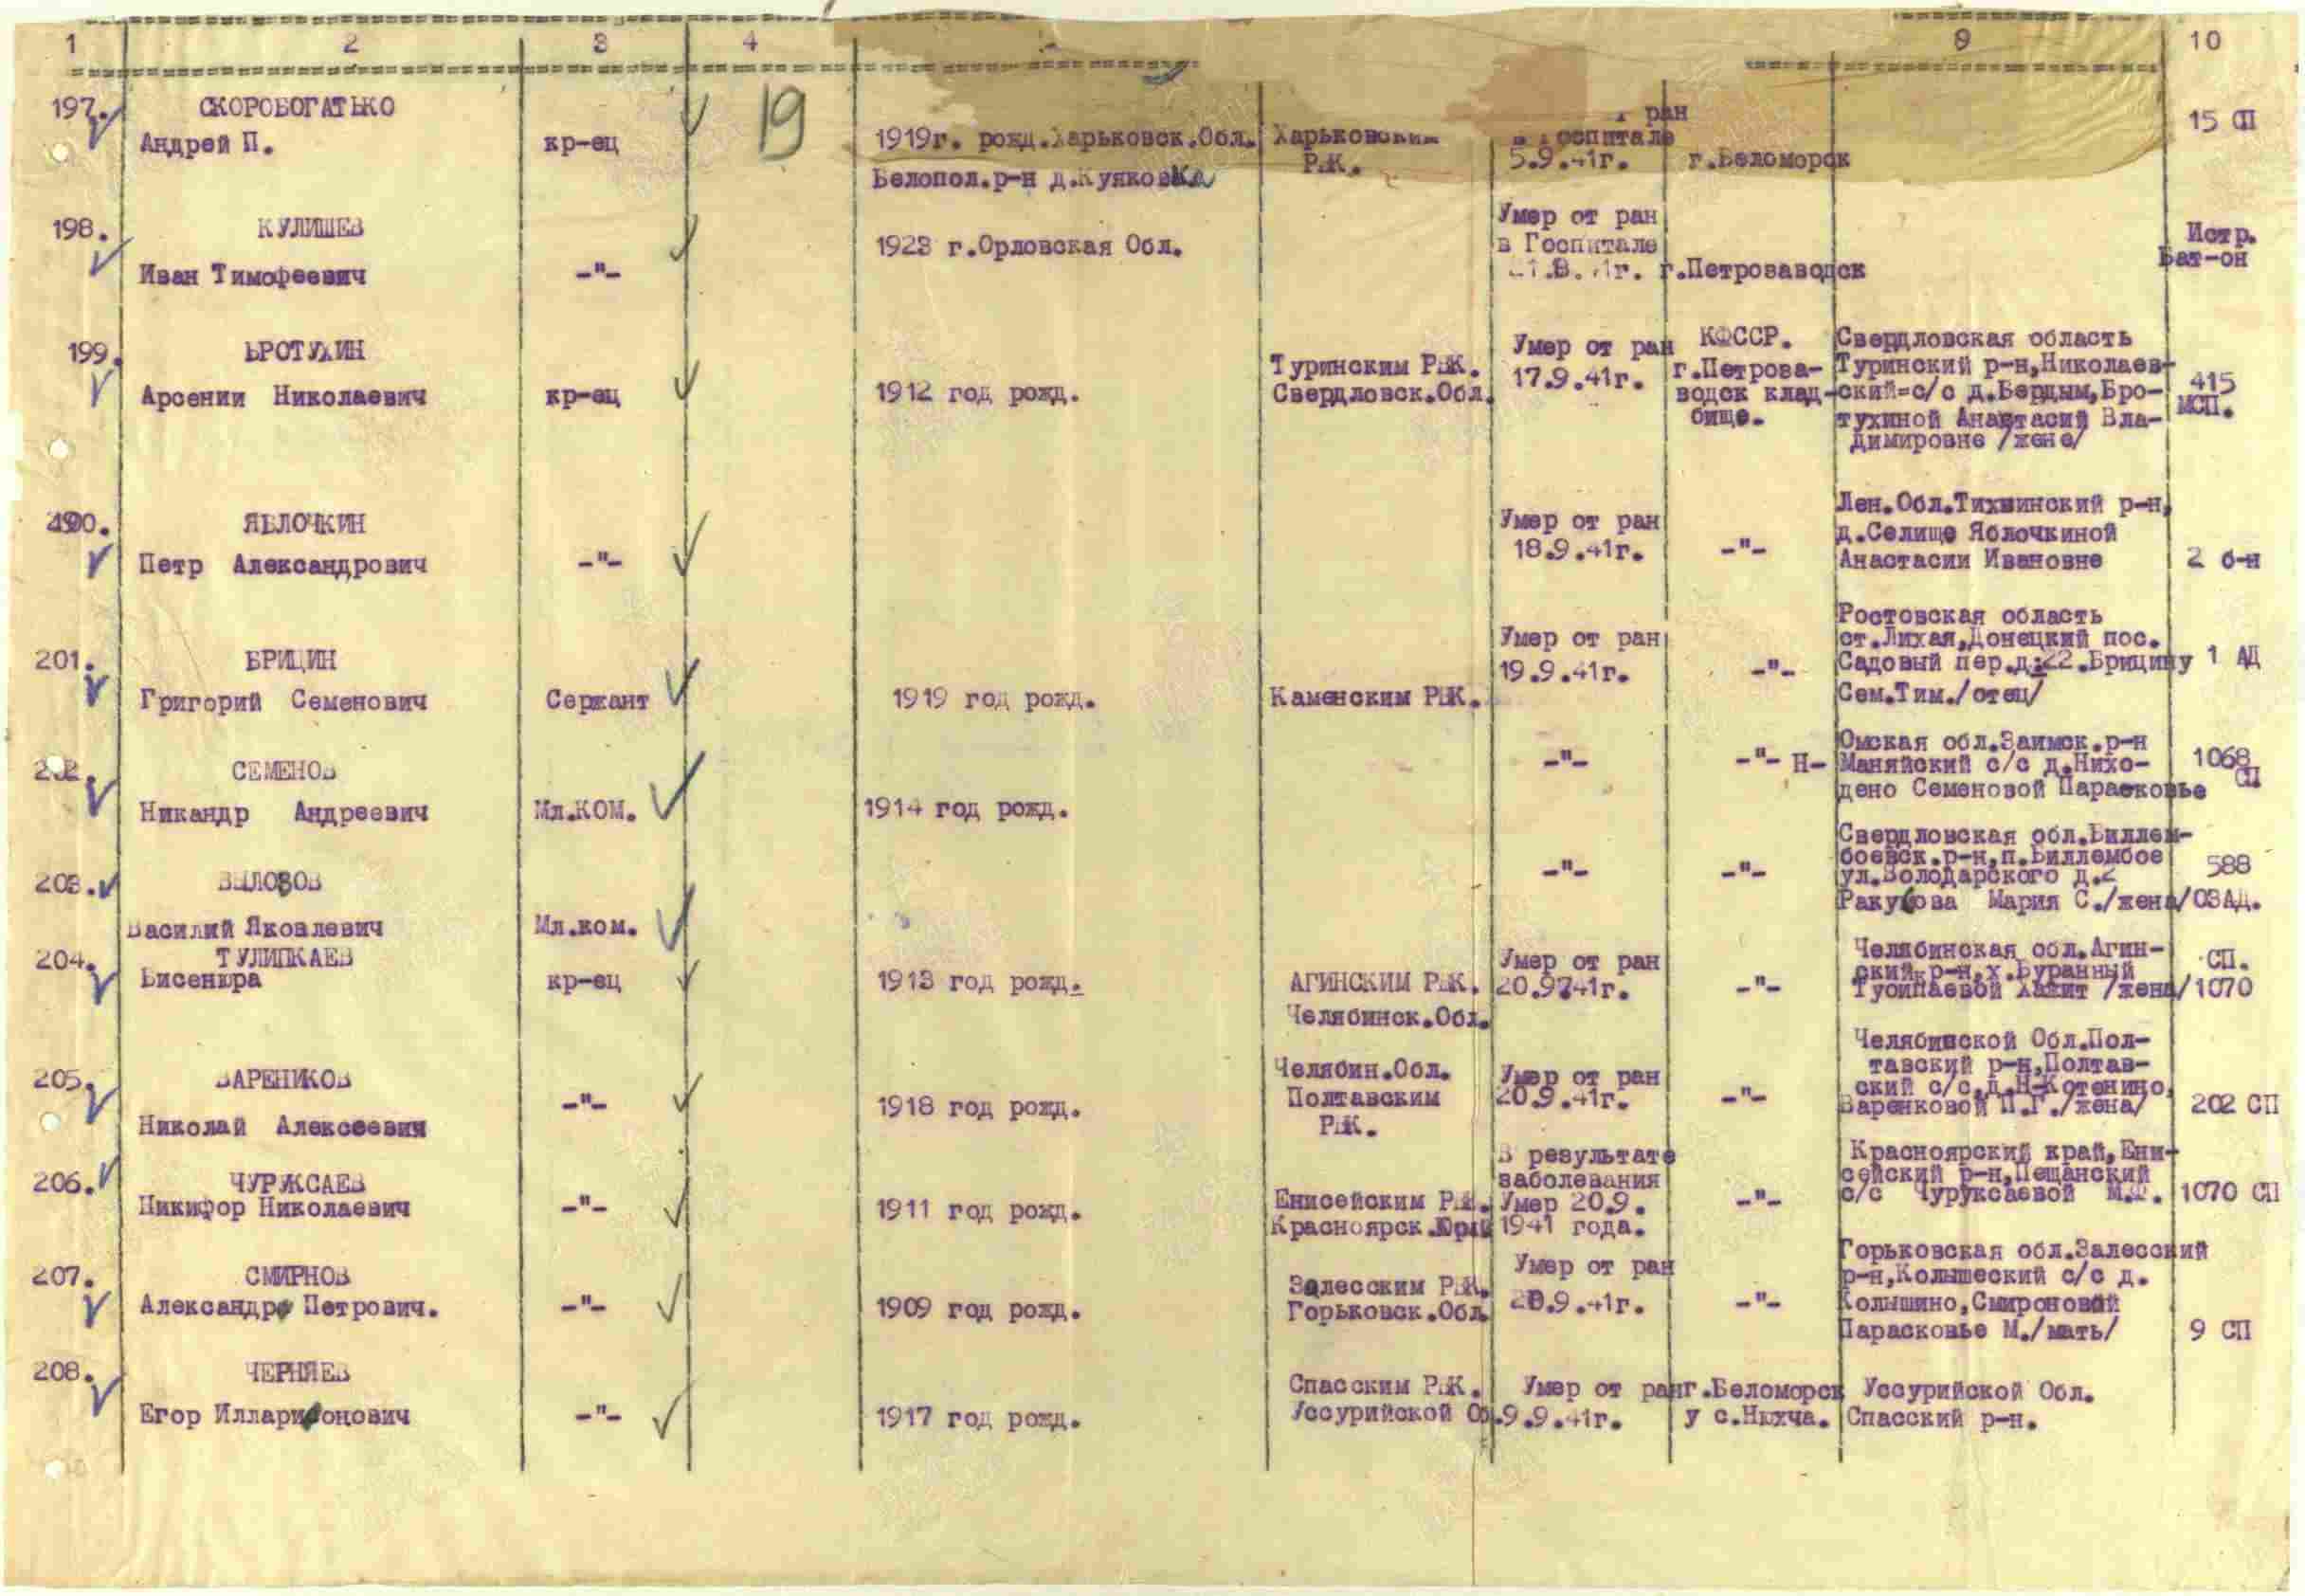 1 2 3 4 9 10
197. СКОРОБОГАТЬКО
Андрей П. кр-ец 19 1919г. рожд.Харьковск.Обл. Харьковским ран 15 СП
Белопол.р-н д.Куяковка РВК. Госпитале
5.9.41г. г.Беломорск
198. КУЛИШЕВ
Иван Тимофеевич -"- 1923 г.Орловская Обл. Умер от ран
в Госпитале
г.Петрозаводск Истр.
Бат-он
199. БРОТУХИН
Арсении Николаевич кр-ец 1912 год рожд. Туринским РВК.
Свердловск.Обл. Умер от ран
17.9.41г. КФССР.
г.Петроза-
водск клад-
бище. Свердловская область
Туринский р-н,Николаев-
ский=с/с д.Бердым,Бро-
тухиной Анастасий Вла-
димировне /жене/ 415
МСП.
ЯБЛОЧКИН
Петр Александрович -"- Умер от ран
18.9.41г. -"- Лен.Обл.Тихвинский р-н,
д.Селище Яблочкиной
Анастасии Ивановне 2 б-н
201. БРИЦИН
Григорий Семенович Сержант 1919 год рожд. Каменским РВК. Умер от ран
19.9.41г. -"- Ростовская область
ст.Лихая,Донецкий пос.
Садовый пер.д.22.Брицину
Сем.Тим./отец/ 1 АД
202. СЕМЕНОВ
Никандр Андреевич Мл.КОМ. 1914 год рожд. -"- -"- Н- Омская обл.Заимск.р-н
Маняйский с/с д.Нихо-
дено Семеновой Парасковье 1068
СП
203. ВЫЛОЗОВ
Василий Яковлевич Мл.ком. -"- -"- Свердловская обл.Биллем-
боевск.р-н,п.Биллембое
ул.Володарского д.2
Мария С./жена/ 588
ОЗАД.
204. ТУЛИПКАЕВ
Бисенюра кр-ец 1913 год рожд. АГИНСКИМ РВК.
Челябинск.Обл. Умер от ран
20.9.41г. -"- Челябинская обл.Агин-
ский р-н,х.Буранный
/жена/ СП.
1070
205. ВАРЕНИКОВ
Николай Алексеевич -"- 1918 год рожд. Челябин.Обл.
Полтавским
РВК. Умер от ран
20.9.41г. -"- Челябинской Обл.Пол-
тавский р-н,Полтав-
ский с/с,д.Н-Котенино,
Варенковой П.Г./жена/ 202 СП
206. ЧУРУКСАЕВ
Никифор Николаевич -"- 1911 год рожд. Енисейским РВК.
Красноярск. В результате
заболевания
Умер 20.9.
1941 года. -"- Красноярский край,Ени-
сейский р-н,Пещанский
с/с Чуруксаевой М.Ф. 1070 СП
207. СМИРНОВ
Александр Петрович. -"- 1909 год рожд. Залесским РВК.
Горьковск.Обл. Умер от ран
20.9.41г. -"- Горьковская обл.Залесский
р-н,Колышеский с/с д.
Колышино,Смироновой
Парасковье М./мать/ 9 СП
208. ЧЕРНЯЕВ
Егор Илларионович -"- 1917 год рожд. Спасским РВК.
Уссурийской Об. Умер от ран
9.9.41г. г.Беломорск
у с.Ныхча. Уссурийской Обл.
Спасский р-н.